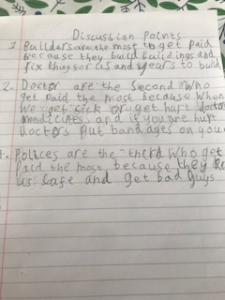 Discusstion Points
1 Builders are the most to get Paid
because they build buildings and
fix things for us and years to build
2. Doctor are the Second who
get Paid the most because when
we get sick or get hurt doctor
medicines and if you are hurt
doctors Put bandages on your
Polices are the third who get
Paid the most because they
us safe and get bad guys